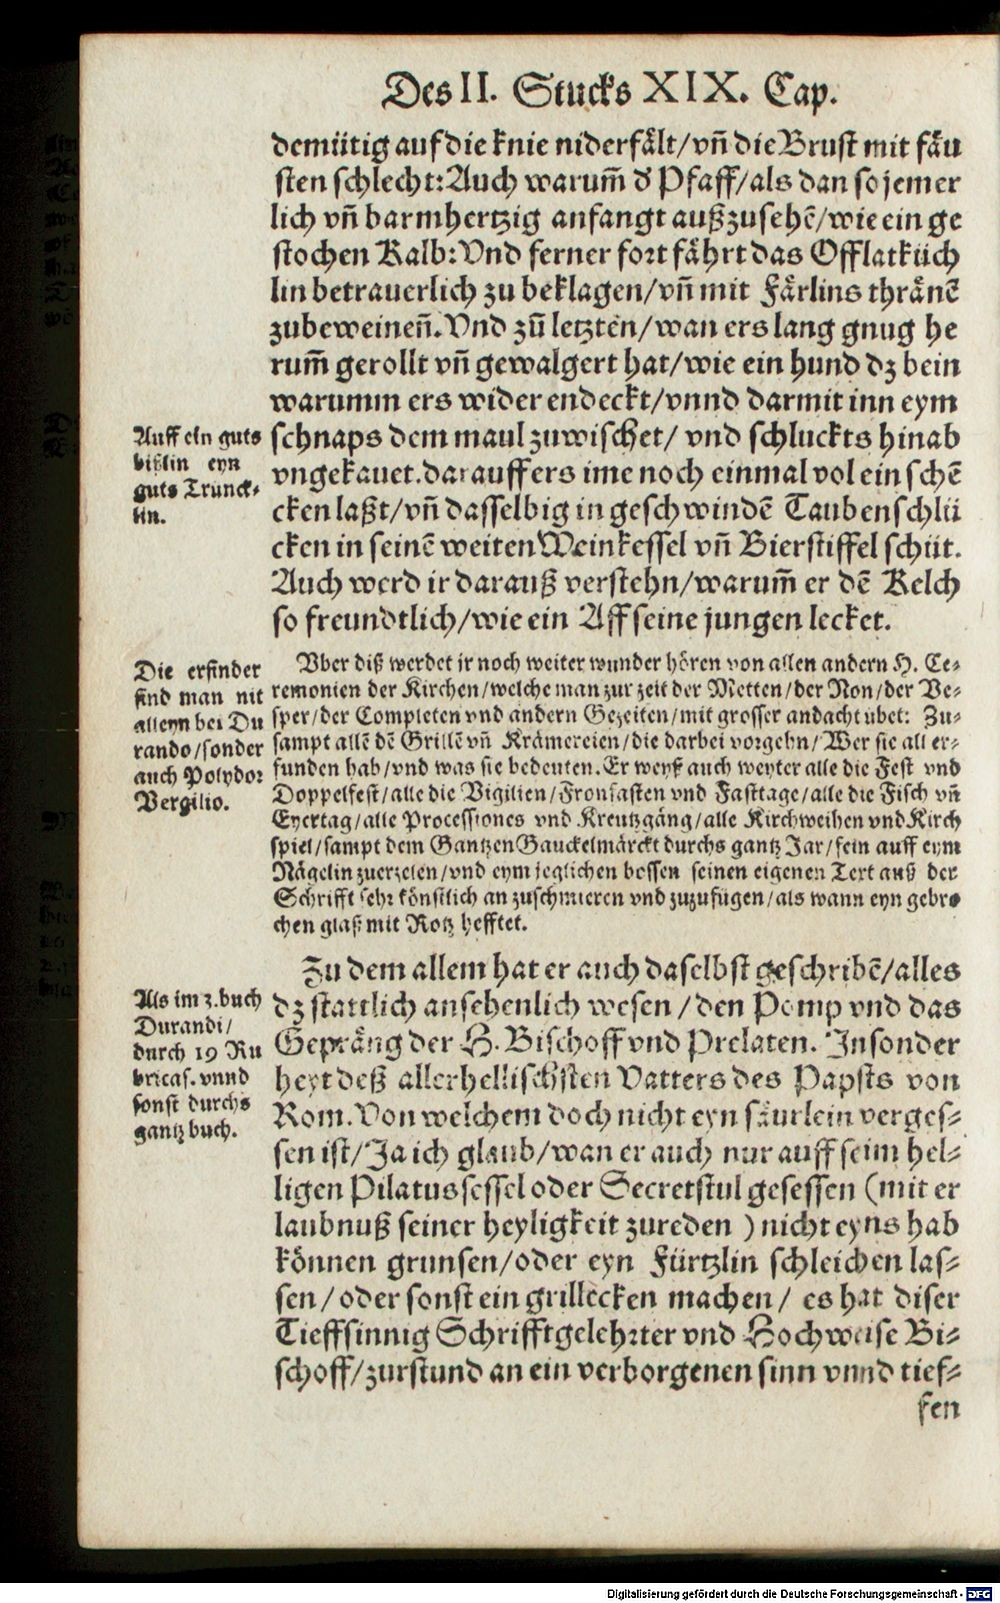 Des II. Stucks XIX. Cap.
demütig auf die knie niderfält/ vñ die Brust mit fäu
sten schlecht: Auch warum̃ d' Pfaff/ als dan so jemer
lich vñ barmhertzig anfangt außzusehẽ/ wie ein ge
stochen Kalb: Vnd ferner fort fährt das Offlatküch
lin betrauerlich zu beklagen/ vñ mit Färlins thränẽ
zubeweineñ. Vnd zũ letzten/ wan ers lang gnug he
rum̃ gerollt vñ gewalgert hat/ wie ein hund dz bein
warumm ers wider endeckt/ vnnd darmit inn eym
schnaps dem maul zuwischet/ vnd schluckts hinab
vngekauet. darauff ers ime noch einmal vol ein schẽ
cken laßt/ vñ dasselbig in geschwindẽ Taubenschlü
cken in seinẽ weiten Weinkessel vñ Bierstiffel schüt.
Auch werd ir darauß verstehn/ warum̃ er dẽ Kelch
so freundtlich/ wie ein Aff seine jungen lecket.
Auff ein guts
bißlin eyn
guts Trunck⸗
lin.
Vber diß werdet jr noch weiter wunder hören von allen andern H. Ce⸗
remonien der Kirchen/ welche man zur zeit der Metten/ der Non/ der Ve⸗
sper/ der Completen vnd andern Gezeiten/ mit grosser andacht übet: Zu⸗
sampt allẽ dẽ Grillẽ vñ Krämereien/ die darbei vorgehn/ Wer sie all er⸗
funden hab/ vnd was sie bedeuten. Er weyß auch weyter alle die Fest vnd
Doppelfest/ alle die Vigilien/ Fronfasten vnd Fasttage/ alle die Fisch vñ
Eyertag/ alle Processiones vnd Kreutzgäng/ alle Kirchweihen vnd Kirch
spiel/ sampt dem Gantzen Gauckelmärckt durchs gantz Jar/ fein auff eym
Nägelin zuerzelen/ vnd eym jeglichen dessen seinen eigenen Text auß der
Schrifft sehr könstlich an zuschmieren vnd zuzufügen/ als wann eyn gebro
chen glaß mit Rotz hefftet.
Die erfinder
find man nit
alleyn bei Du
rando/ sonder
auch Polydor
Vergilio.
Zu dem allem hat er auch daselbst geschribẽ/ alles
dz stattlich ansehenlich wesen/ den Pomp vnd das
Gepräng der H. Bischoff vnd Prelaten. Insonder
heyt deß allerhellischsten Vatters des Papsts von
Rom. Von welchem doch nicht eyn säurlein verges⸗
sen ist/ Ja ich glaub/ wan er auch nur auff seim hel⸗
ligen Pilatussessel oder Secretstul gesessen (mit er
laubnuß seiner heyligkeit zureden) nicht eyns hab
können grunsen/ oder eyn Fürtzlin schleichen las⸗
sen/ oder sonst ein grillecken machen/ es hat diser
Tieffsinnig Schrifftgelehrter vnd Hochweise Bi⸗
schoff/ zurstund an ein verborgenen sinn vnnd tief⸗
fen
Als im 2. buch
Durandi/
durch 19 Ru
bricas. vnnd
sonst durchs
gantz buch.
Digitalisierung gefördert durch die Deutsche Forschungsgemeinschaft - DFG